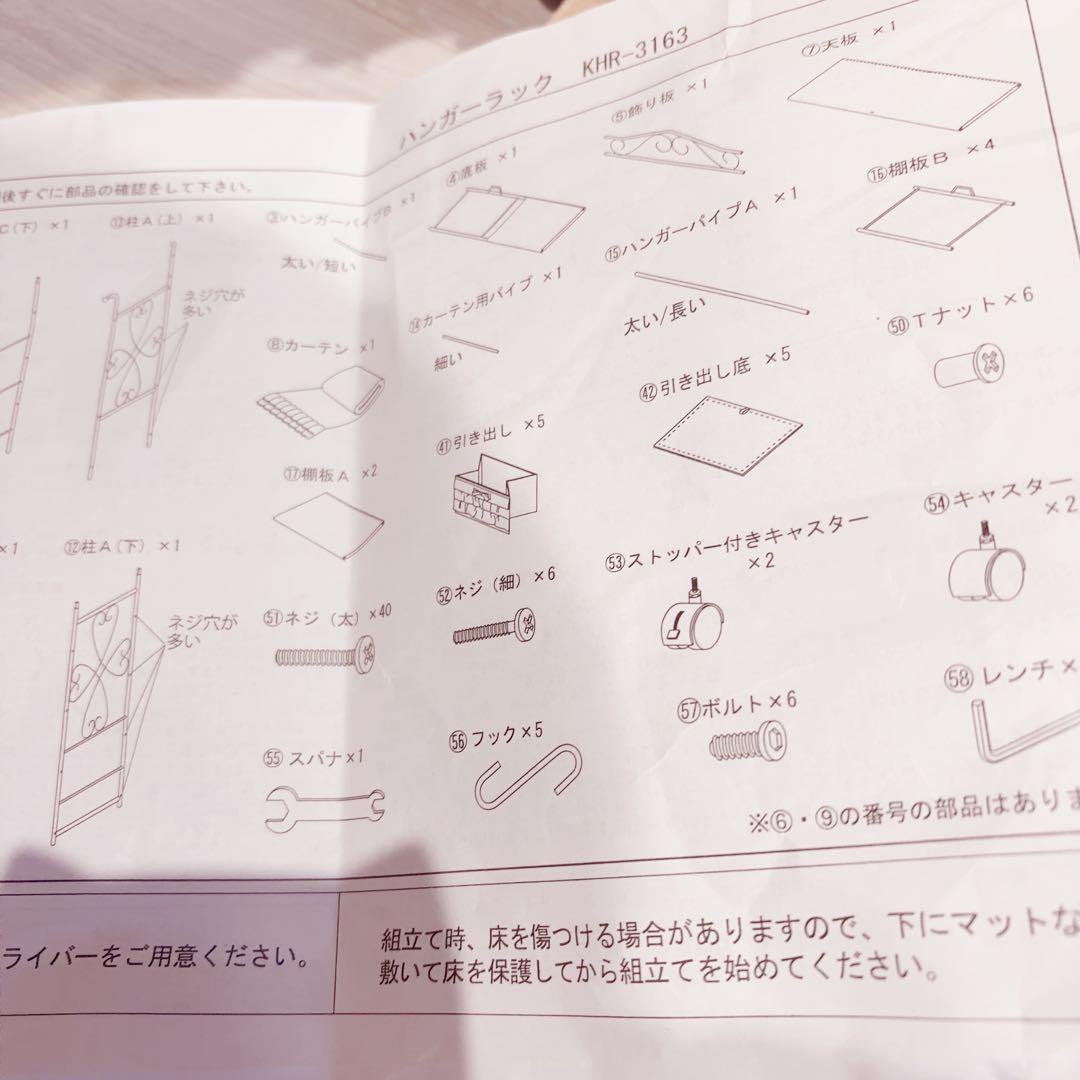 ハンガーラック KHR-3163
後すぐに部品の確認をして下さい。
C(下) ×1
⑬柱A(上) ×1
ネジ穴が
多い
③ハンガーパイプB ×1
太い/短い
④底板 ×1
⑤飾り板 ×1
⑦天板 ×1
⑧カーテン ×1
⑭カーテン用パイプ ×1
細い
⑮ハンガーパイプA ×1
太い/長い
⑯棚板B ×4
⑰棚板A ×2
㊶引き出し ×5
㊷引き出し底 ×5
㊿Tナット×6
×1
⑫柱A(下) ×1
ネジ穴が
多い
51ネジ(太)×40
52ネジ(細)×6
53ストッパー付きキャスター
×2
54キャスター
×2
55スパナ×1
56フック×5
57ボルト×6
58レンチ×
※⑥・⑨の番号の部品はありま
ライバーをご用意ください。
組立て時、床を傷つける場合がありますので、下にマットな
敷いて床を保護してから組立てを始めてください。